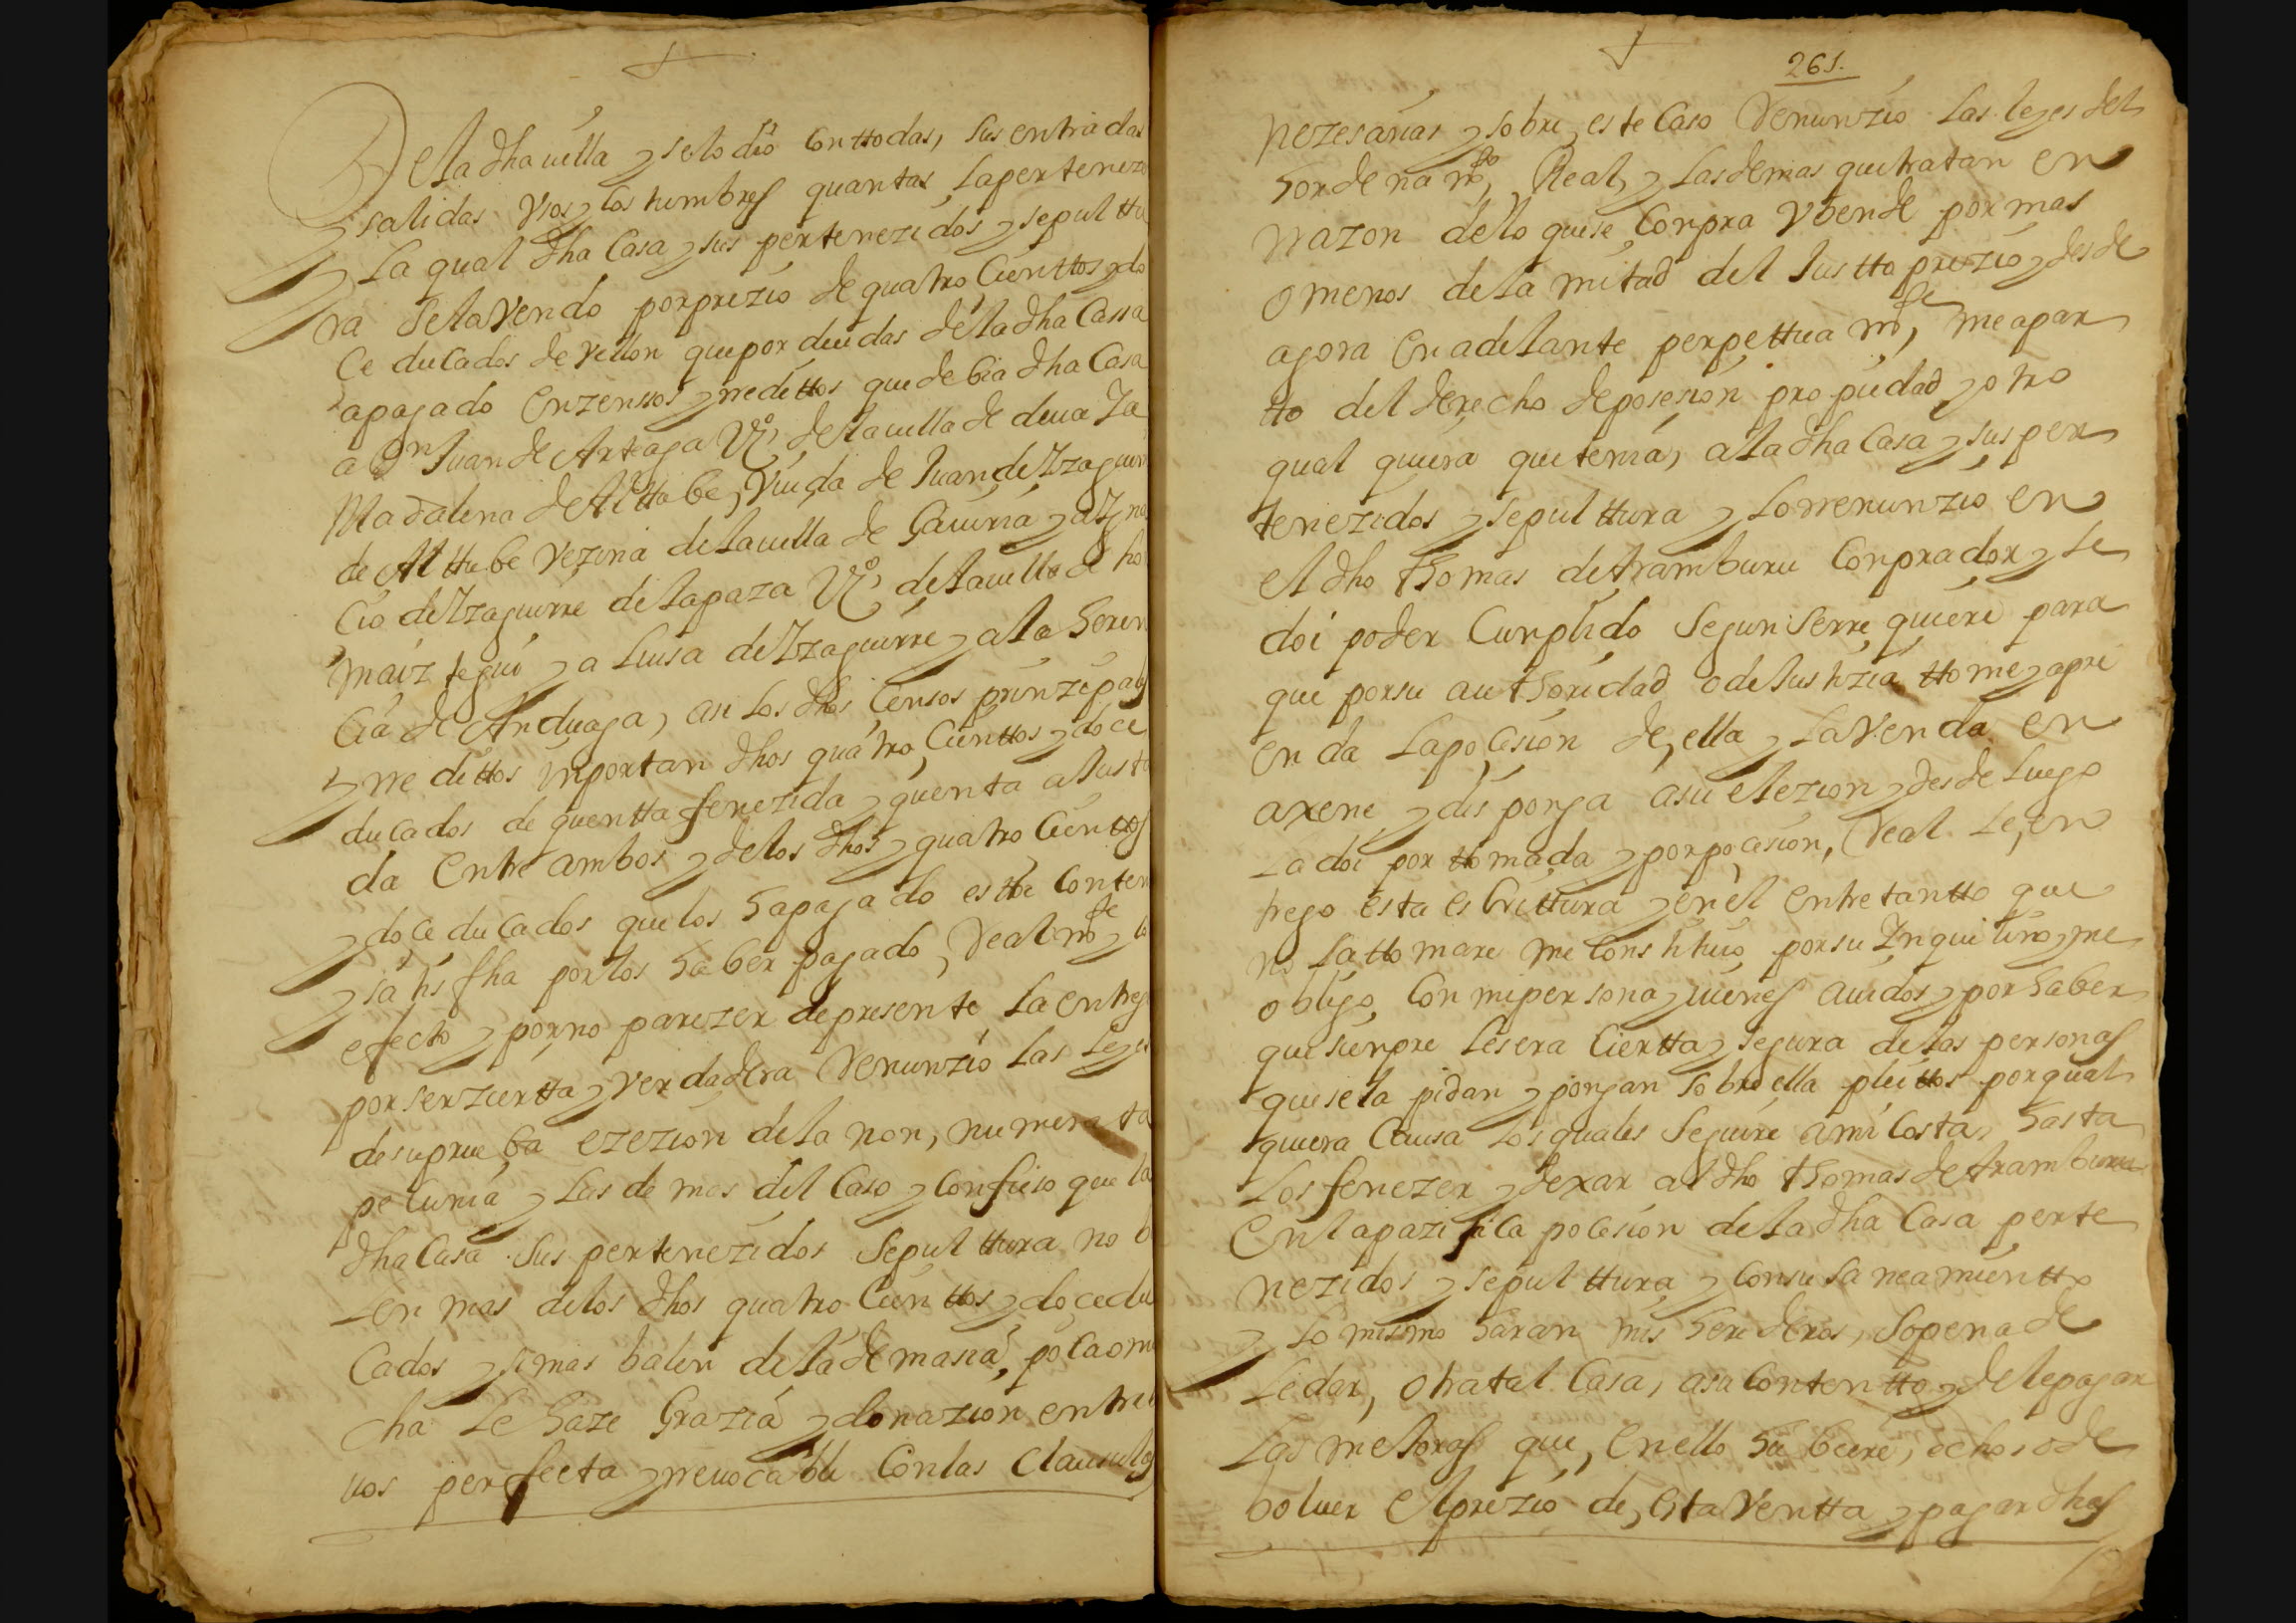 De la dha uilla y se lo dio con ttodas, sus entradas
y salidas Vsos y costumbres quantas la pertenez
y La qual dha Casa y sus pertenezidos y sepulttu
ra Se la Vendo por prezio de quatro Cienttos y do
Ce ducados de Vellon que por deudas de la dha Cassa
a pagado en zensos y rredittos que debia dha Casa
a Dn Juan de Arteaga Vº, de la uilla de deua Ja
Madalena de Alttube, Viuda de Juan de Yzaguirr
de Alttube Vezina de la uilla de Gauiria y a Ygna
Cio de Yzaguirre de la paza Vº, de la uilla de ho
maiztegui y a Luisa de Yzaguirre y a la Heren
Cia de Anduaga, asi los dhos Censos prinzipales
y rredittos ynportan dhos quatro Cienttos y doce
ducados de quentta fenezida y quenta a Justa
da Entre ambos y de los dhos y quatro Cienttos
y doce ducados que los ha pagado estta Conten
y satisfha por los haber pagado, Real mte y co
efecto y por no parezer de presente La entrega
por ser ziertta y verdadera Renunzio Las Leyes
de su prueba ezezion de la non, numerata
pecunia y Las de mas del Caso y confieso que la
dha Casa Sus pertenezidos Sepulttura no b
Len mas de los dhos quatro Cienttos y doce du
Cados y si mas balen de la demasia, poca o mu
cha Le haze Grazia y donazion entre u
uos perfecta y rreuocable Con las Clausulas
261.
Nezesarias y sobre este Caso Renunzio Las leyes del
hordenamto, Real, y Las demas que tratan en
rrazon de lo que se Conpra Vbende por mas
o menos de la mitad del Justto prezio y desde
agora en adelante perpettuamte, me apar
tto del derecho de posesion propiedad y otro
qual quiera que tenia, a la dha Casa y sus per
tenezidos y sepulttura y Lo rrenunzio en
el dho thomas de Aramburu Conprador y Le
doi poder Cunplido Segun Se rrequiere para
que por su authoridad o de Justizia ttome y apre
enda La pocesion de, ella y La Venda en
axene y disponga a su elezion y desde Luego
La doi por ttomada y por pocesion, Real Le, en
trego esta escrittura y en el entretantto que
no La ttomare me Constituio por su Ynquilino y me
obligo, Con mi persona y uienes auidos y por haber
que sienpre Le sera Ciertta y segura de las personas
que se la pidan y pongan Sobre ella pleittos por qual
quiera Causa Los quales Seguire a mi Costa, hasta
Los fenezer y dexar al dho thomas de Aramburu
En la pazifica pocesion de la dha Casa perte
nezidos y sepulttura y Con su saneamientto
y Lo mismo haran mis herederos, So pena de
Le dar, otra tal Casa, a su Contentto y de le pagar
Las mejoras que, En ello hubiere, echo, o de
boluer El prezio de, esta Ventta y pagar dhas